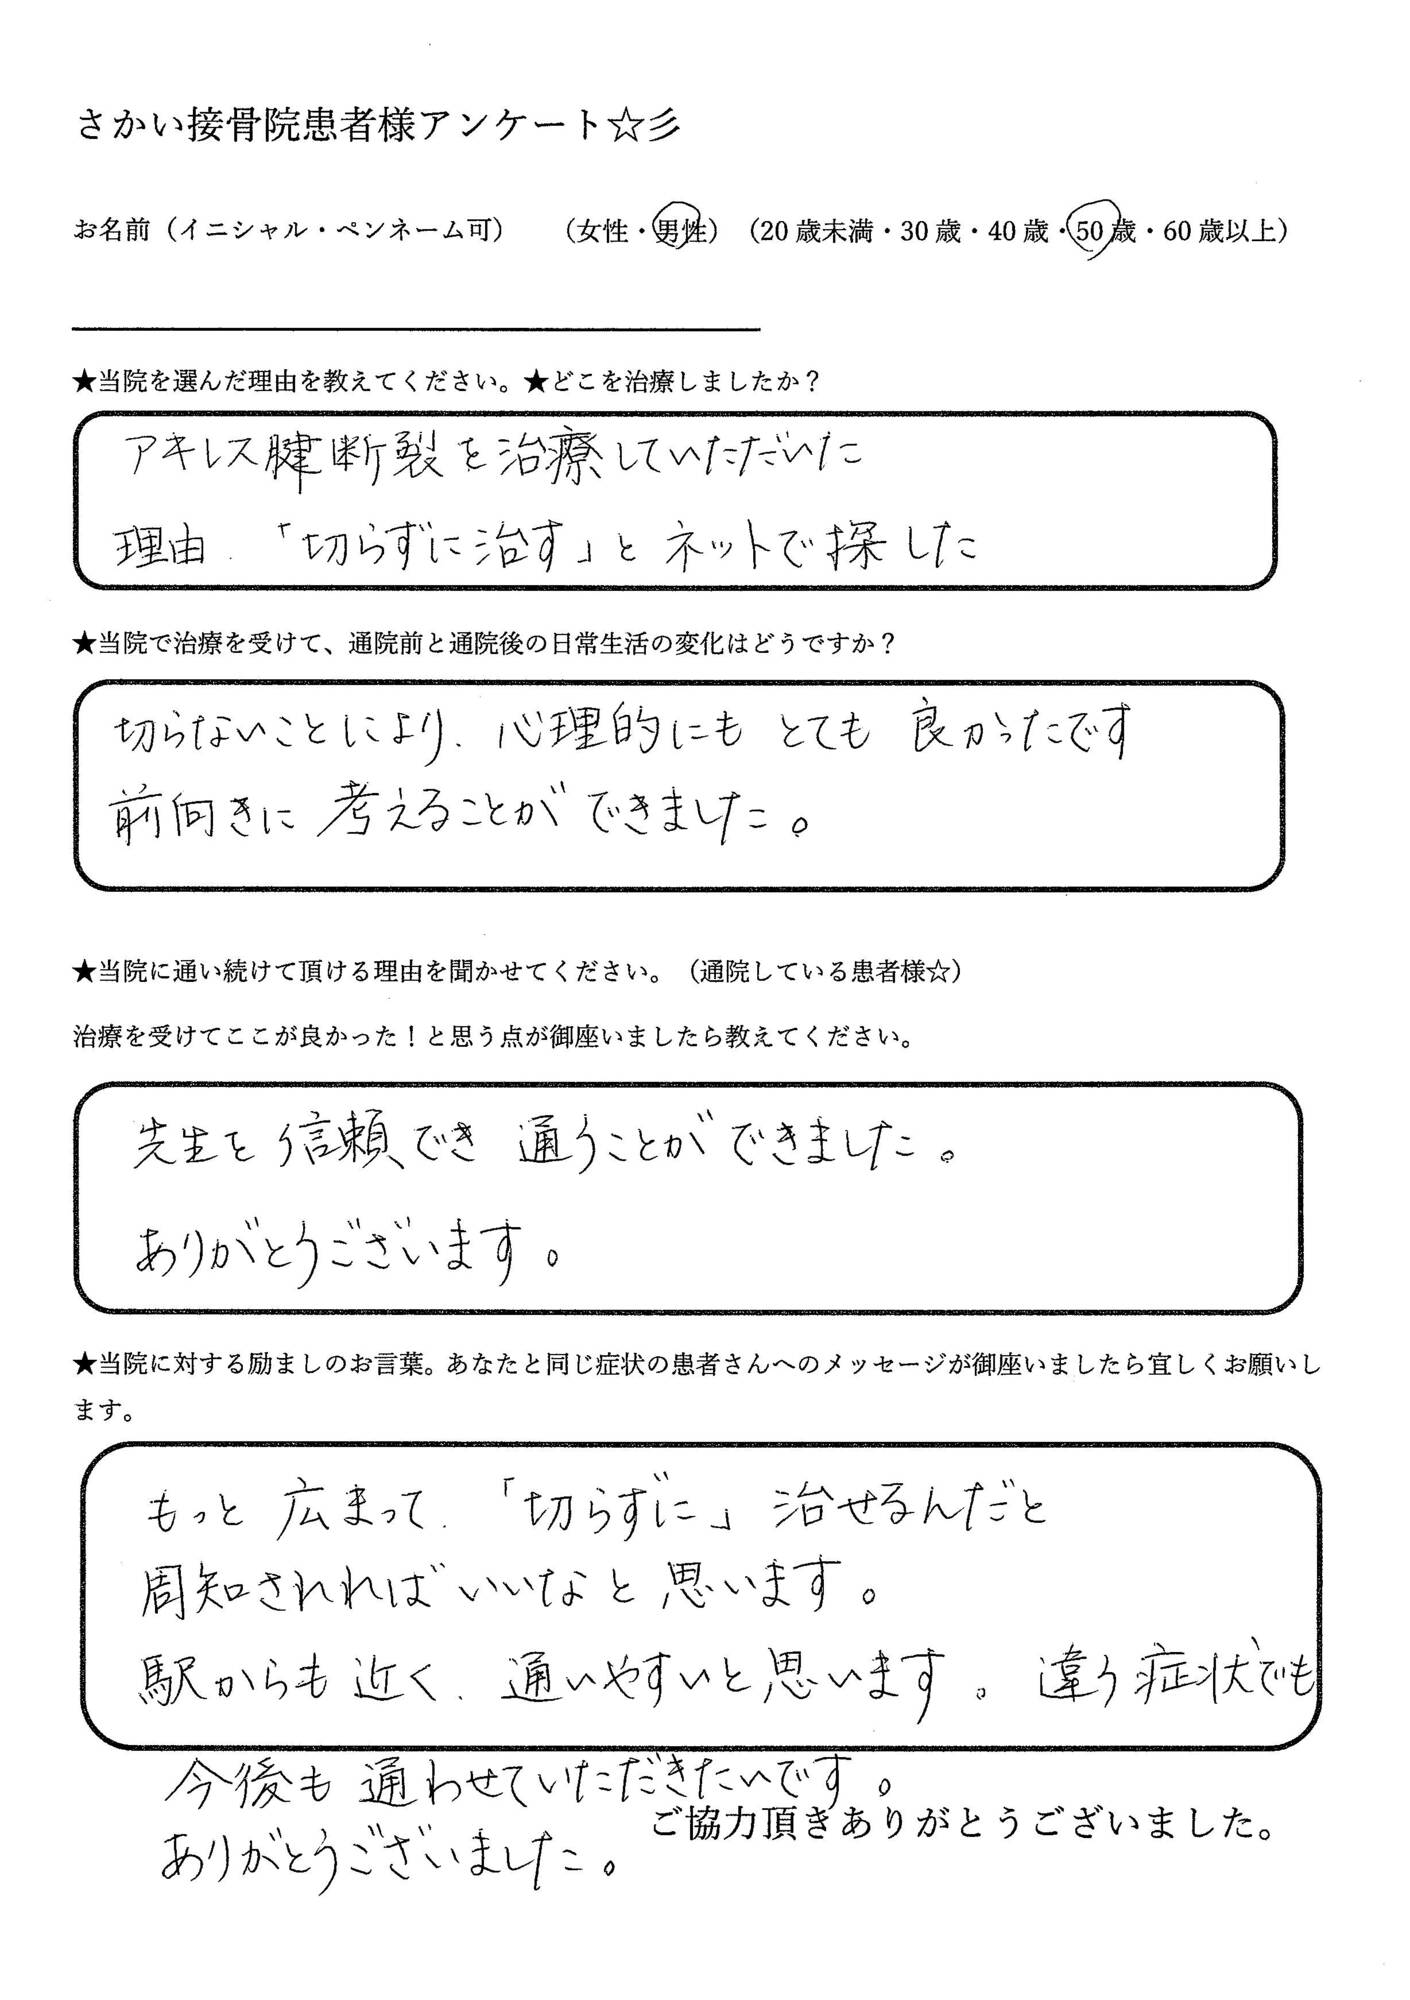 さかい接骨院患者様アンケート☆彡
お名前（イニシャル・ペンネーム可）　（女性・男性）（20歳未満・30歳・40歳・50歳・60歳以上）
★当院を選んだ理由を教えてください。★どこを治療しましたか？
アキレス腱断裂を治療していただいた
理由．「切らずに治す」と ネットで探した
★当院で治療を受けて、通院前と通院後の日常生活の変化はどうですか？
切らないことにより、心理的にも とても 良かったです
前向きに 考えることができました。
★当院に通い続けて頂ける理由を聞かせてください。（通院している患者様☆）
治療を受けてここが良かった！と思う点が御座いましたら教えてください。
先生を信頼でき 通うことができました。
ありがとうございます。
★当院に対する励ましのお言葉。あなたと同じ症状の患者さんへのメッセージが御座いましたら宜しくお願いし
ます。
もっと 広まって、「切らずに」治せるんだと
周知されればいいなと思います。
駅からも近く、通いやすいと思います。違う症状でも
今後も 通わせていただきたいです。
ご協力頂きありがとうございました。
ありがとうございました。